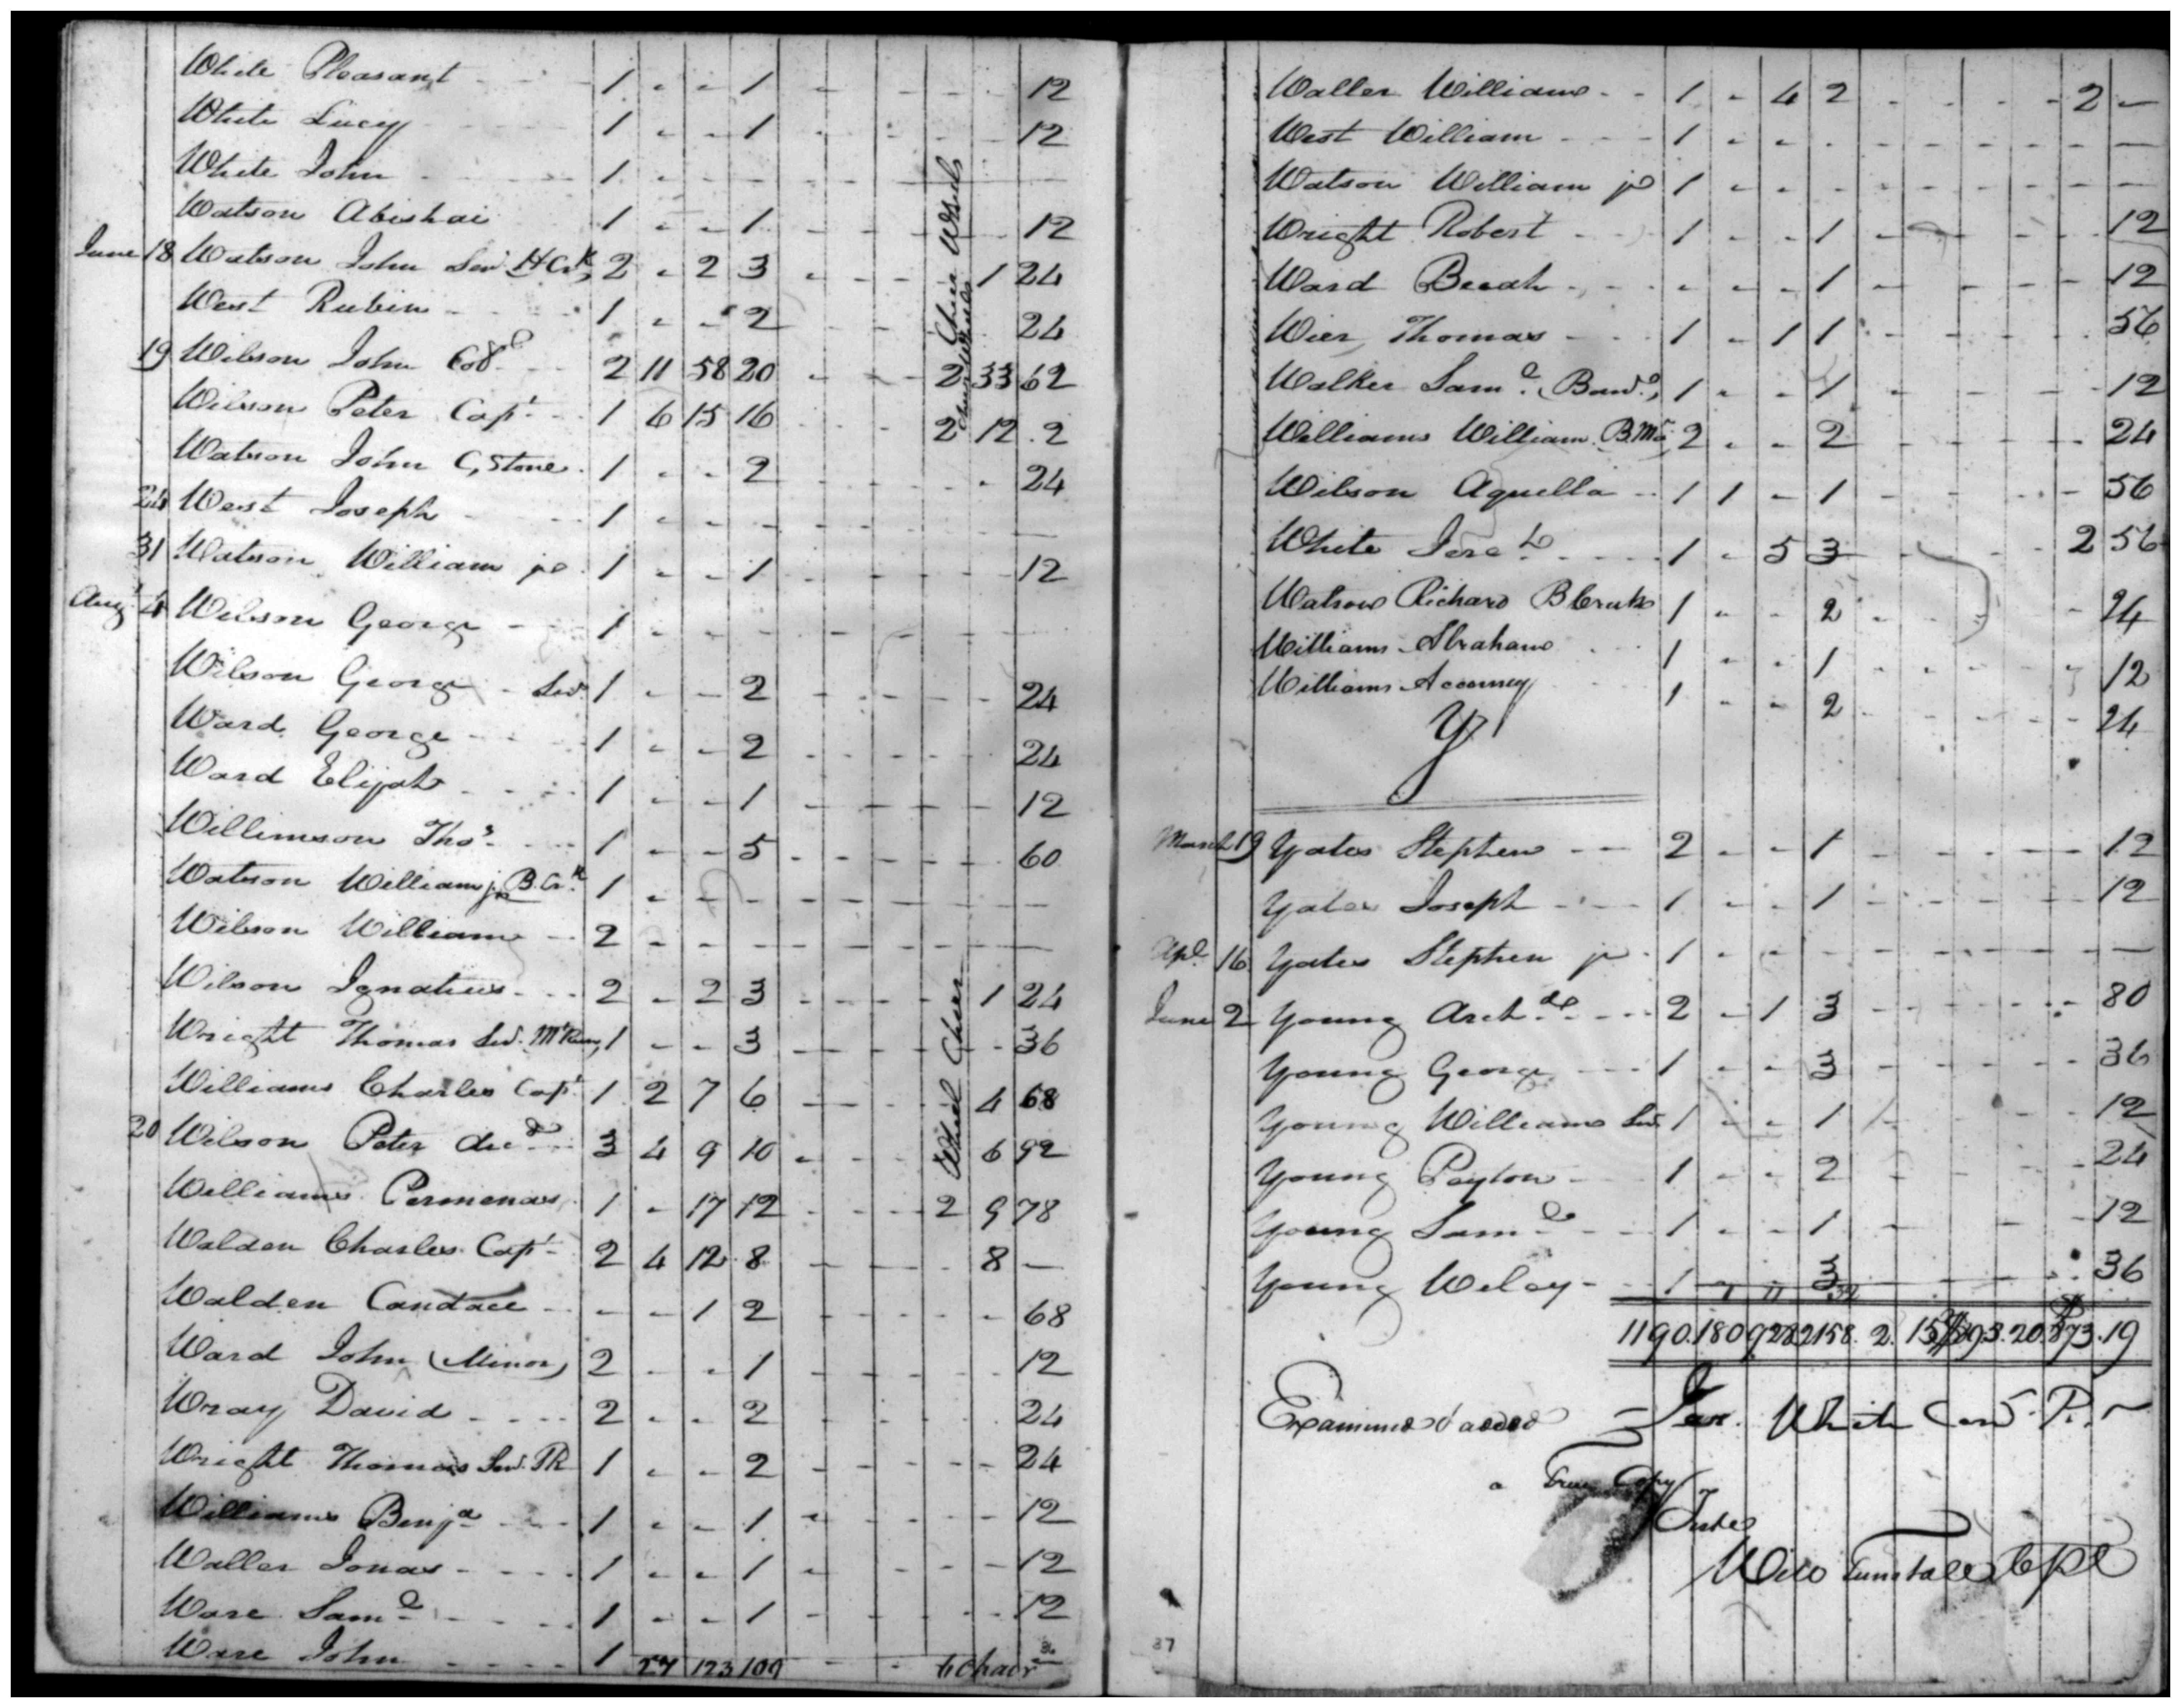 White Pleasant - - - 1 - - 1 - - - - 12
White Lucy - - - 1 - - 1 - - - - 12
White John - - - 1 - - - - - - - —
Watson Abishai 1 - - 1 - - - - 12
June 18 Watson John Senr. H Crk, 2 - 2 3 - - - 1 24
West Rubin - - - 1 - - 2 - - - 24
19 Wilson John Colo. - - 2 11 58 20 - - - 2 Chair Wheels 33 62
Wilson Peter Capt. - - 1 6 15 16 - - - 2 Chair Wheels 12. 2
Watson John C, Stone. 1 - - 2 - - - - 24
24 West Joseph - - - 1 - - - - - - - —
31 Watson William jr. 1 - - 1 - - - - - 12
Augt. 4 Wilson George - - - 1 - - - - - - - —
Wilson George - Senr. 1 - - 2 - - - - 24
Ward George - - - 1 - - 2 - - - - 24
Ward Elijah - - - 1 - - 1 - - - - - 12
Willimson Thos. - - - 1 - - 5 - - - - - 60
Watson William jr. B. Crk. 1 - - - - - - - - —
Wilson William - - 2 - - - - - - - - —
Wilson Ignatius - - - 2 - 2 3 - - - 1 24
Wright Thomas Senr. 1 - - 3 - - - - 36
Williams Charles Capt. 1 2 7 6 - - - 4 68
20 Wilson Peter decd. - - 3 4 9 10 - - - 6 92
Williams Permenas. 1 - 17 12 - - - 2 Wheel Chair 9 78
Walden Charles Capt. - 2 4 12 8 - - - 8 —
Walden Candace - - - - 1 2 - - - - 68
Ward John (Minor) 2 - - 1 - - - - 12
Wray David - - - 2 - - 2 - - - - 24
Wright Thomas Senr. PR 1 - - 2 - - - - - 24
Williams Benja. - - - 1 - - 1 - - - - - 12
Waller Jonas - - - 1 - - 1 - - - - 12
Ware Saml. - - - 1 - - 1 - - - - 12
Ware John - - - 1 27 123 109 - - 6 Chair
Waller William - - 1 - 4 2 - - - - 2 —
West William - - - 1 - - - - - - - - —
Watson William jr 1 - - - - - - - - —
Wright Robert - - - 1 - - 1 - - - - - 12
Ward Beeah - - - - - - 1 - - - - 12
Wier Thomas - - - 1 - 1 1 - - - - 56
Walker Saml. (Band.) 1 - - 1 - - - - - 12
Williams William 2 - - 2 - - - - - 24
Wilson Aquella - - 1 1 - 1 - - - - - 56
White Jere.h - - - 1 - 5 3 - - - 2 56
Watson Richard B Creek 1 - - 2 - - - - 24
Williams Abraham - - 1 - - 1 - - - - 12
Williams 1 - - 2 - - - - 24
Y
March 19 Yates Stephen - - - 2 - - 1 - - - - - 12
Yates Joseph - - - 1 - - 1 - - - - - 12
Apl. 16 Yates Stephen jr - 1 - - - - - - - - —
June 2 Young Archd. - - - 2 - 1 3 - - - - - 80
Young George - - - 1 - - 3 - - - - - 36
Young William Senr. 1 - - 1 - - - - 12
Young Peyton - - - 1 - - 2 - - - - 24
Young Saml. - - - 1 - - 1 - - - - 12
Young Weley - - 1 3 - - - - 36
1190. 1809 2158. 2. 20. 873.19
Examined & added = Jas. White
a True Copy
Teste
Will Tunstall
37